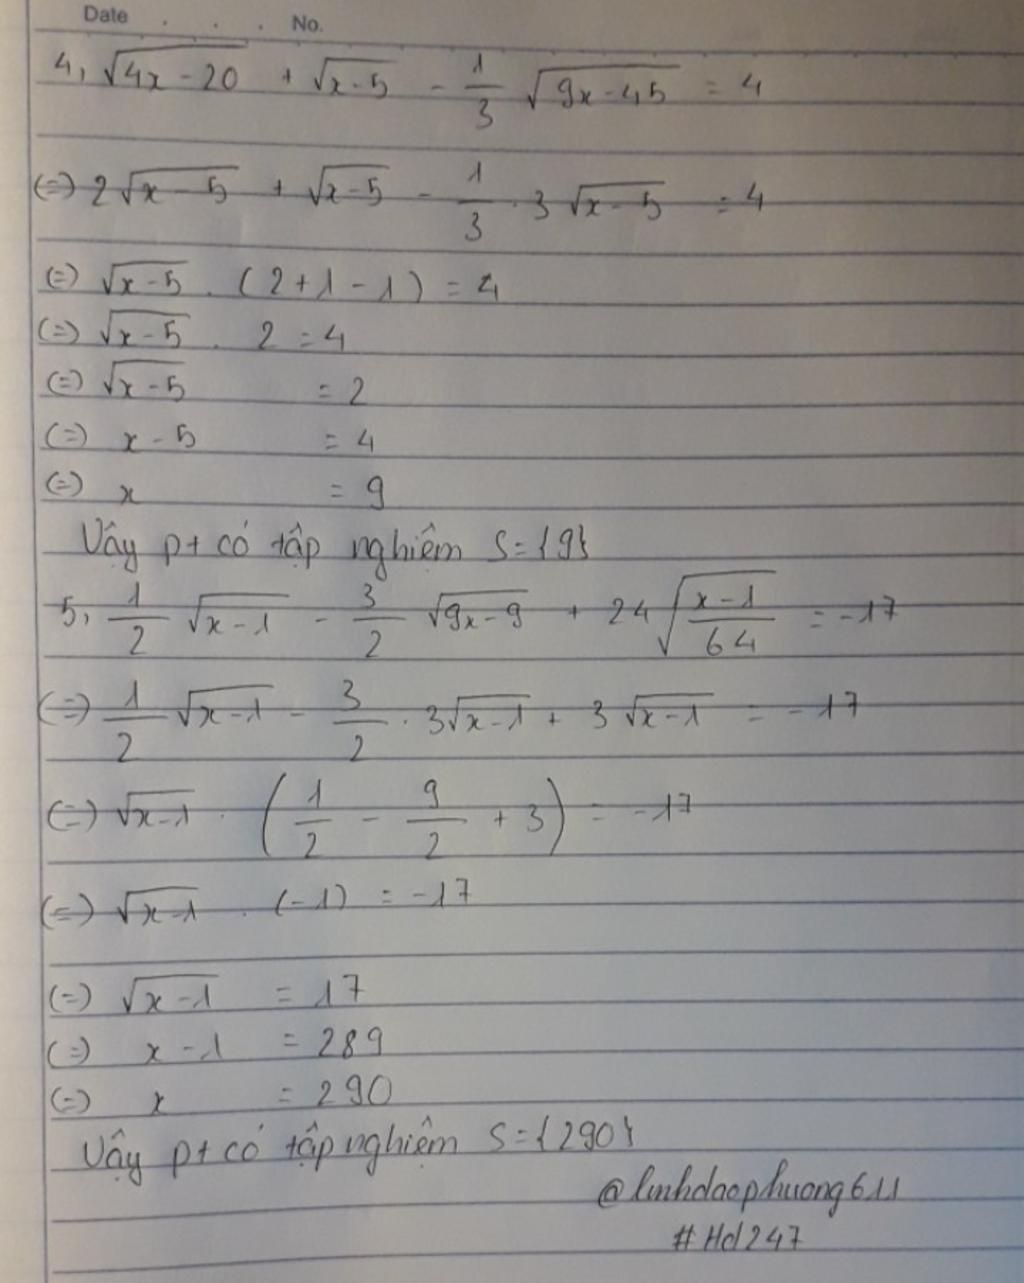 Date . . . No.
4, √(4x-20) + √(x-5) - 1/3 √(9x-45) = 4
(=) 2√(x-5) + √(x-5) - 1/3 . 3√(x-5) = 4
(=) √(x-5) . (2+1-1) = 4
(=) √(x-5) . 2 = 4
(=) √(x-5) = 2
(=) x-5 = 4
(=) x = 9
Vậy pt có tập nghiệm S={9}
5, 1/2 √(x-1) - 3/2 √(9x-9) + 24√((x-1)/64) = -17
(=) 1/2 √(x-1) - 3/2 . 3√(x-1) + 3√(x-1) = -17
(=) √(x-1) . (1/2 - 9/2 + 3) = -17
(=) √(x-1) . (-1) = -17
(=) √(x-1) = 17
(=) x-1 = 289
(=) x = 290
Vậy pt có tập nghiệm S={290}
@linhdaophuong611
#Hd247